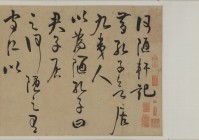 何陋軒記
昔孔子欲居
九夷人
以為陋孔子曰
君子居
之何陋之有
守仁以